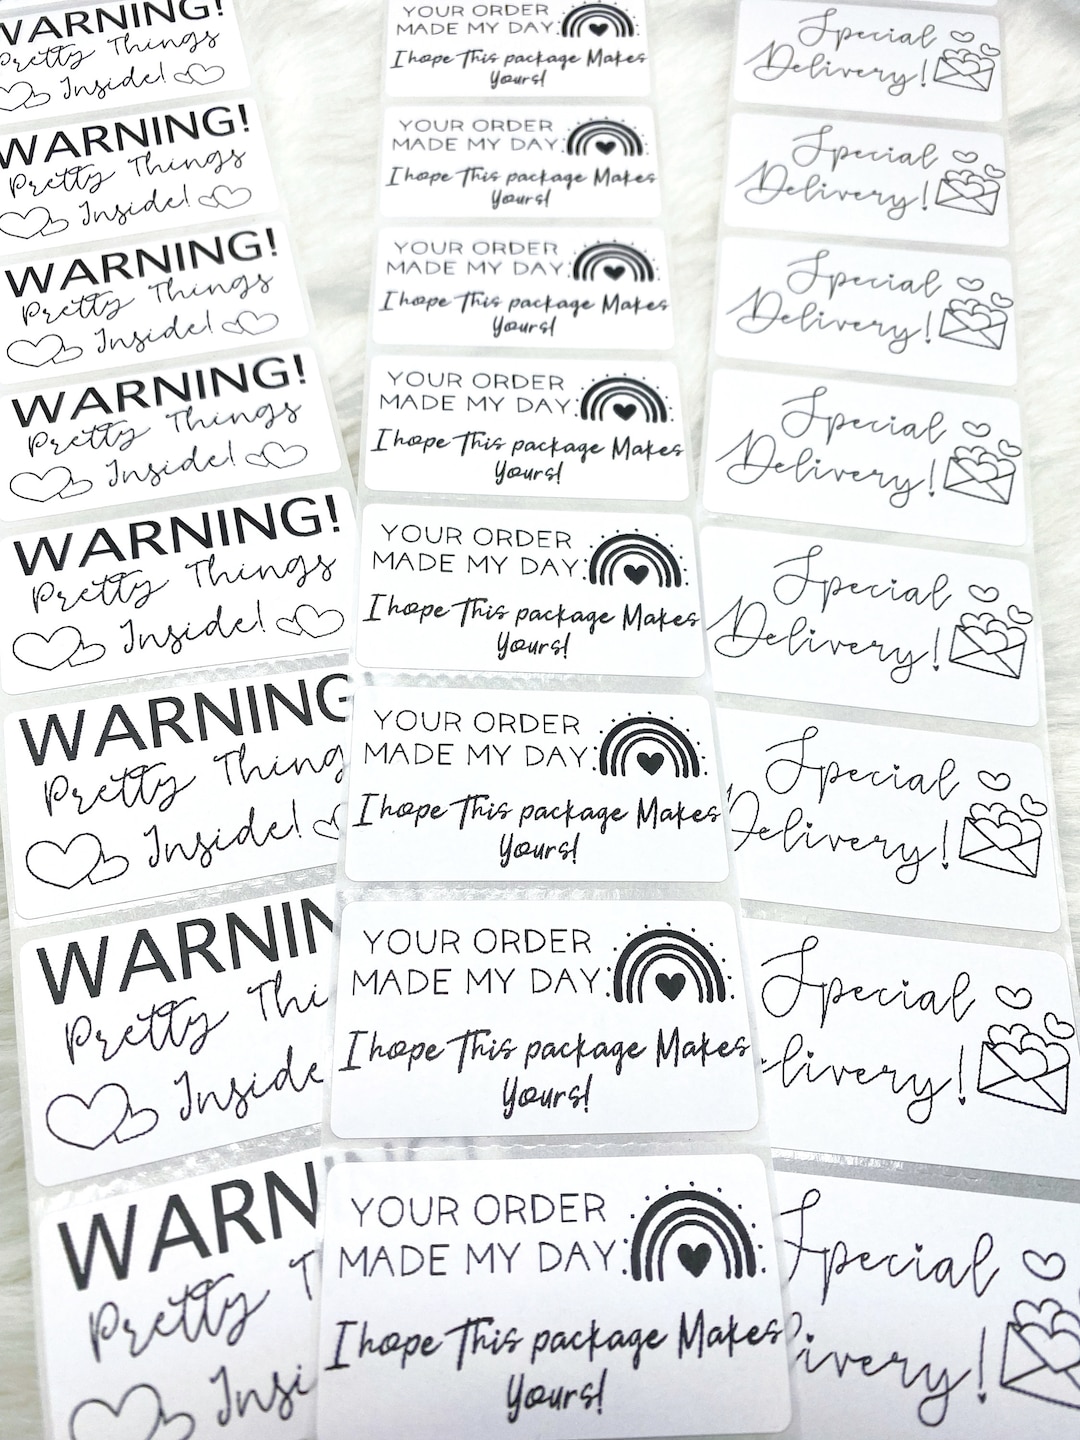 WARNING!
Pretty Things
Inside!
WARNING!
Pretty Things
Inside!
WARNING!
Pretty Things
Inside!
WARNING!
Pretty Things
Inside!
WARNING!
Pretty Things
Inside!
WARNING
Pretty Thing
Inside!
WARNIN
Pretty Thi
Inside
WARN
Pretty T
Insi
YOUR ORDER
MADE MY DAY.
I hope This package Makes
Yours!
YOUR ORDER
MADE MY DAY.
I hope This package Makes
Yours!
YOUR ORDER
MADE MY DAY.
I hope This package Makes
Yours!
YOUR ORDER
MADE MY DAY.
I hope This package Makes
Yours!
YOUR ORDER
MADE MY DAY.
I hope This package Makes
Yours!
YOUR ORDER
MADE MY DAY.
I hope This package Makes
Yours!
YOUR ORDER
MADE MY DAY.
I hope This package Makes
Yours!
YOUR ORDER
MADE MY DAY.
I hope This package Makes
Yours!
Special
Delivery!
Special
Delivery!
Special
Delivery!
Special
Delivery!
Special
Delivery!
Special
Delivery!
Special
elivery!
Special
ivery!